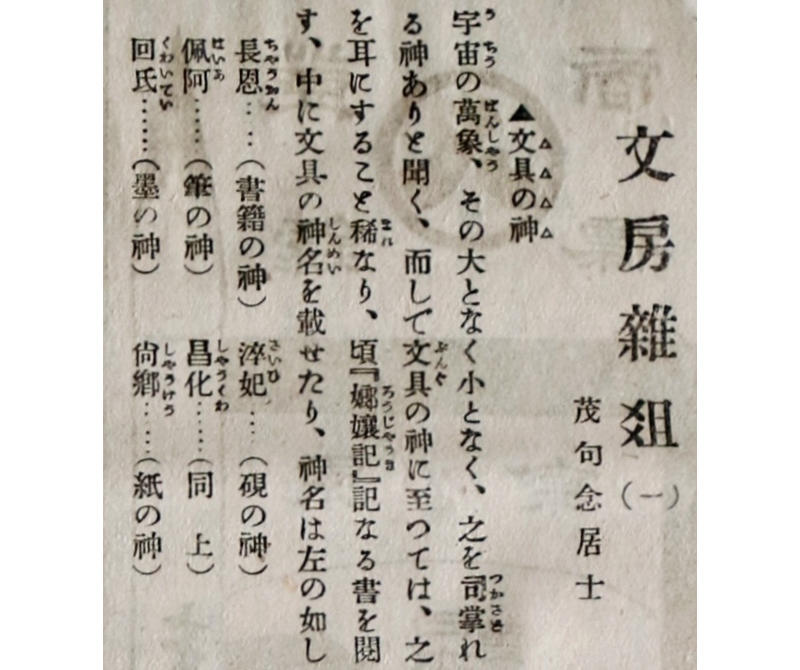 文房雜爼(一)
茂句念居士
▲文具の神
宇宙の萬象、その大となく小となく、之を司掌れ
る神ありと聞く、而して文具の神に至つては、之
を耳にすること稀なり、頃『嫏孃記』記なる書を閲
す、中に文具の神名を載せたり、神名は左の如し
長恩‥‥(書籍の神) 淬妃‥‥(硯の神)
佩阿……(筆の神) 昌化……(同 上)
回氐……(墨の神) 尙鄕……(紙の神)